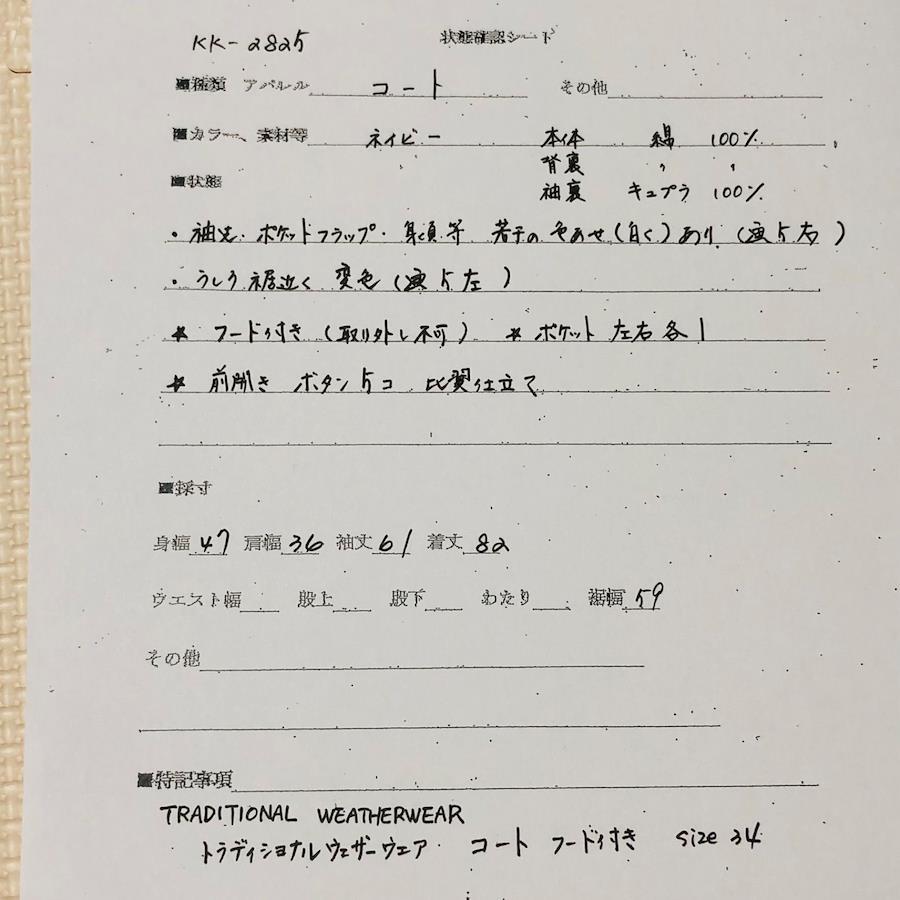 KK-2825
状態確認シート
■種類 アパレル コート その他
■カラー、素材等 ネイビー 本体 綿 100%
背裏 〃 〃
■状態 袖裏 キュプラ 100%
・袖先・ポケットフラップ・身頃等 若干の色あせ(白く)あり (画5右)
・うしろ裾近く 変色(画5左)
* フード付き(取り外し不可) * ポケット 左右各1
* 前開き ボタン5コ 比翼仕立て
■採寸
身幅 47 肩幅 36 袖丈 61 着丈 82
ウエスト幅 股上 股下 わたり 裾幅 59
その他
■特記事項
TRADITIONAL WEATHERWEAR
トラディショナルウェザーウェア コート フード付き size 34